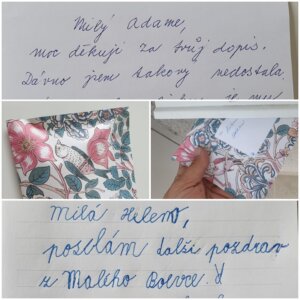 Milý Adame,
moc děkuji za tvůj dopis.
Dávno jsem takový nedostala,
je
Milá Heleno,
posílám další pozdrav
z Malého Bolevce.